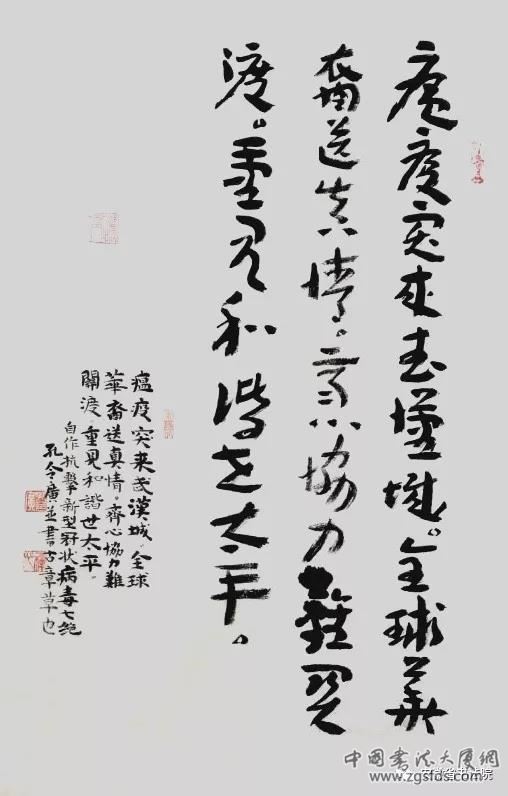 瘟疫突来武漢城。全球華
裔送真情。齊心協力難関
渡。重見和谐世太平。
瘟疫突来武漢城、全球
華裔送真情。齊心協力難
關渡。重見和諧世太平。
自作抗擊新型冠状病毒七绝
孔令廣並書古章草也
中國書法大厦網
www.zgsfds.com